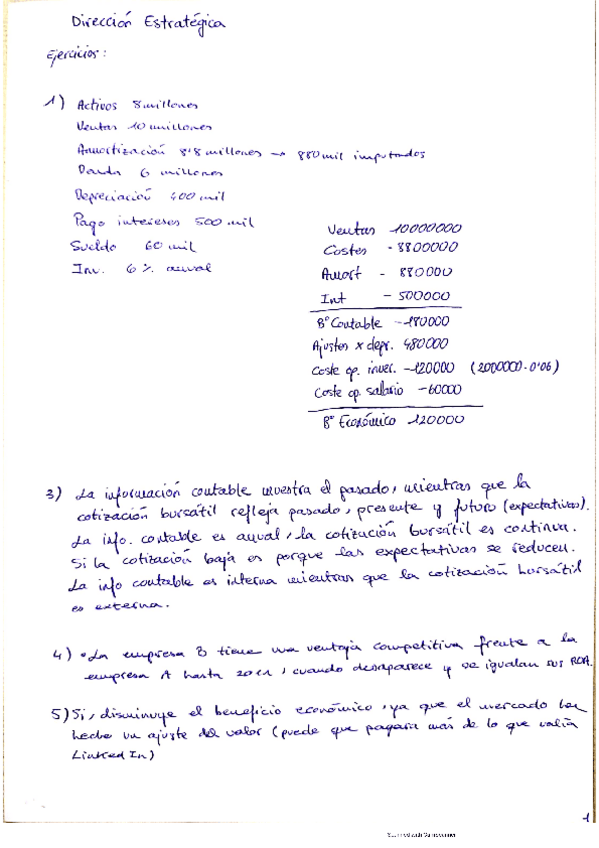 Dirección Estratégica
Ejercicios:
1) Activos 8 millones
Ventas 10 millones
Amortización 8'8 millones → 880 mil imputados
Deuda 6 millones
Depreciación 400 mil
Pago intereses 500 mil
Sueldo 60 mil
Inv. 6% anual
Ventas 10000000
Costes - 8800000
Amort - 880000
Int - 500000
Bº Contable -180000
Ajustes x depr. 480000
Coste op. inver. -120000 (2000000·0'06)
Coste op. salario -60000
Bº Económico 120000
3) La información contable muestra el pasado, mientras que la
cotización bursátil refleja pasado, presente y futuro (expectativas).
La info. contable es anual, la cotización bursátil es continua.
Si la cotización baja es porque las expectativas se reducen.
La info contable es interna mientras que la cotización bursátil
es externa.
4) • La empresa B tiene una ventaja competitiva frente a la
empresa A hasta 2011, cuando desaparece y se igualan sus ROA.
5) Sí, disminuye el beneficio económico, ya que el mercado ha
hecho un ajuste del valor (puede que pagara más de lo que valía
LinkedIn)
1
Scanned with CamScanner